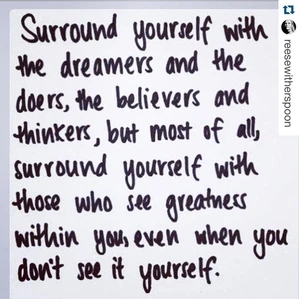 Surround yourself with
the dreamers and the
doers, the believers and
thinkers, but most of all,
surround yourself with
those who see greatness
within you, even when you
don't see it yourself.
reesewitherspoon